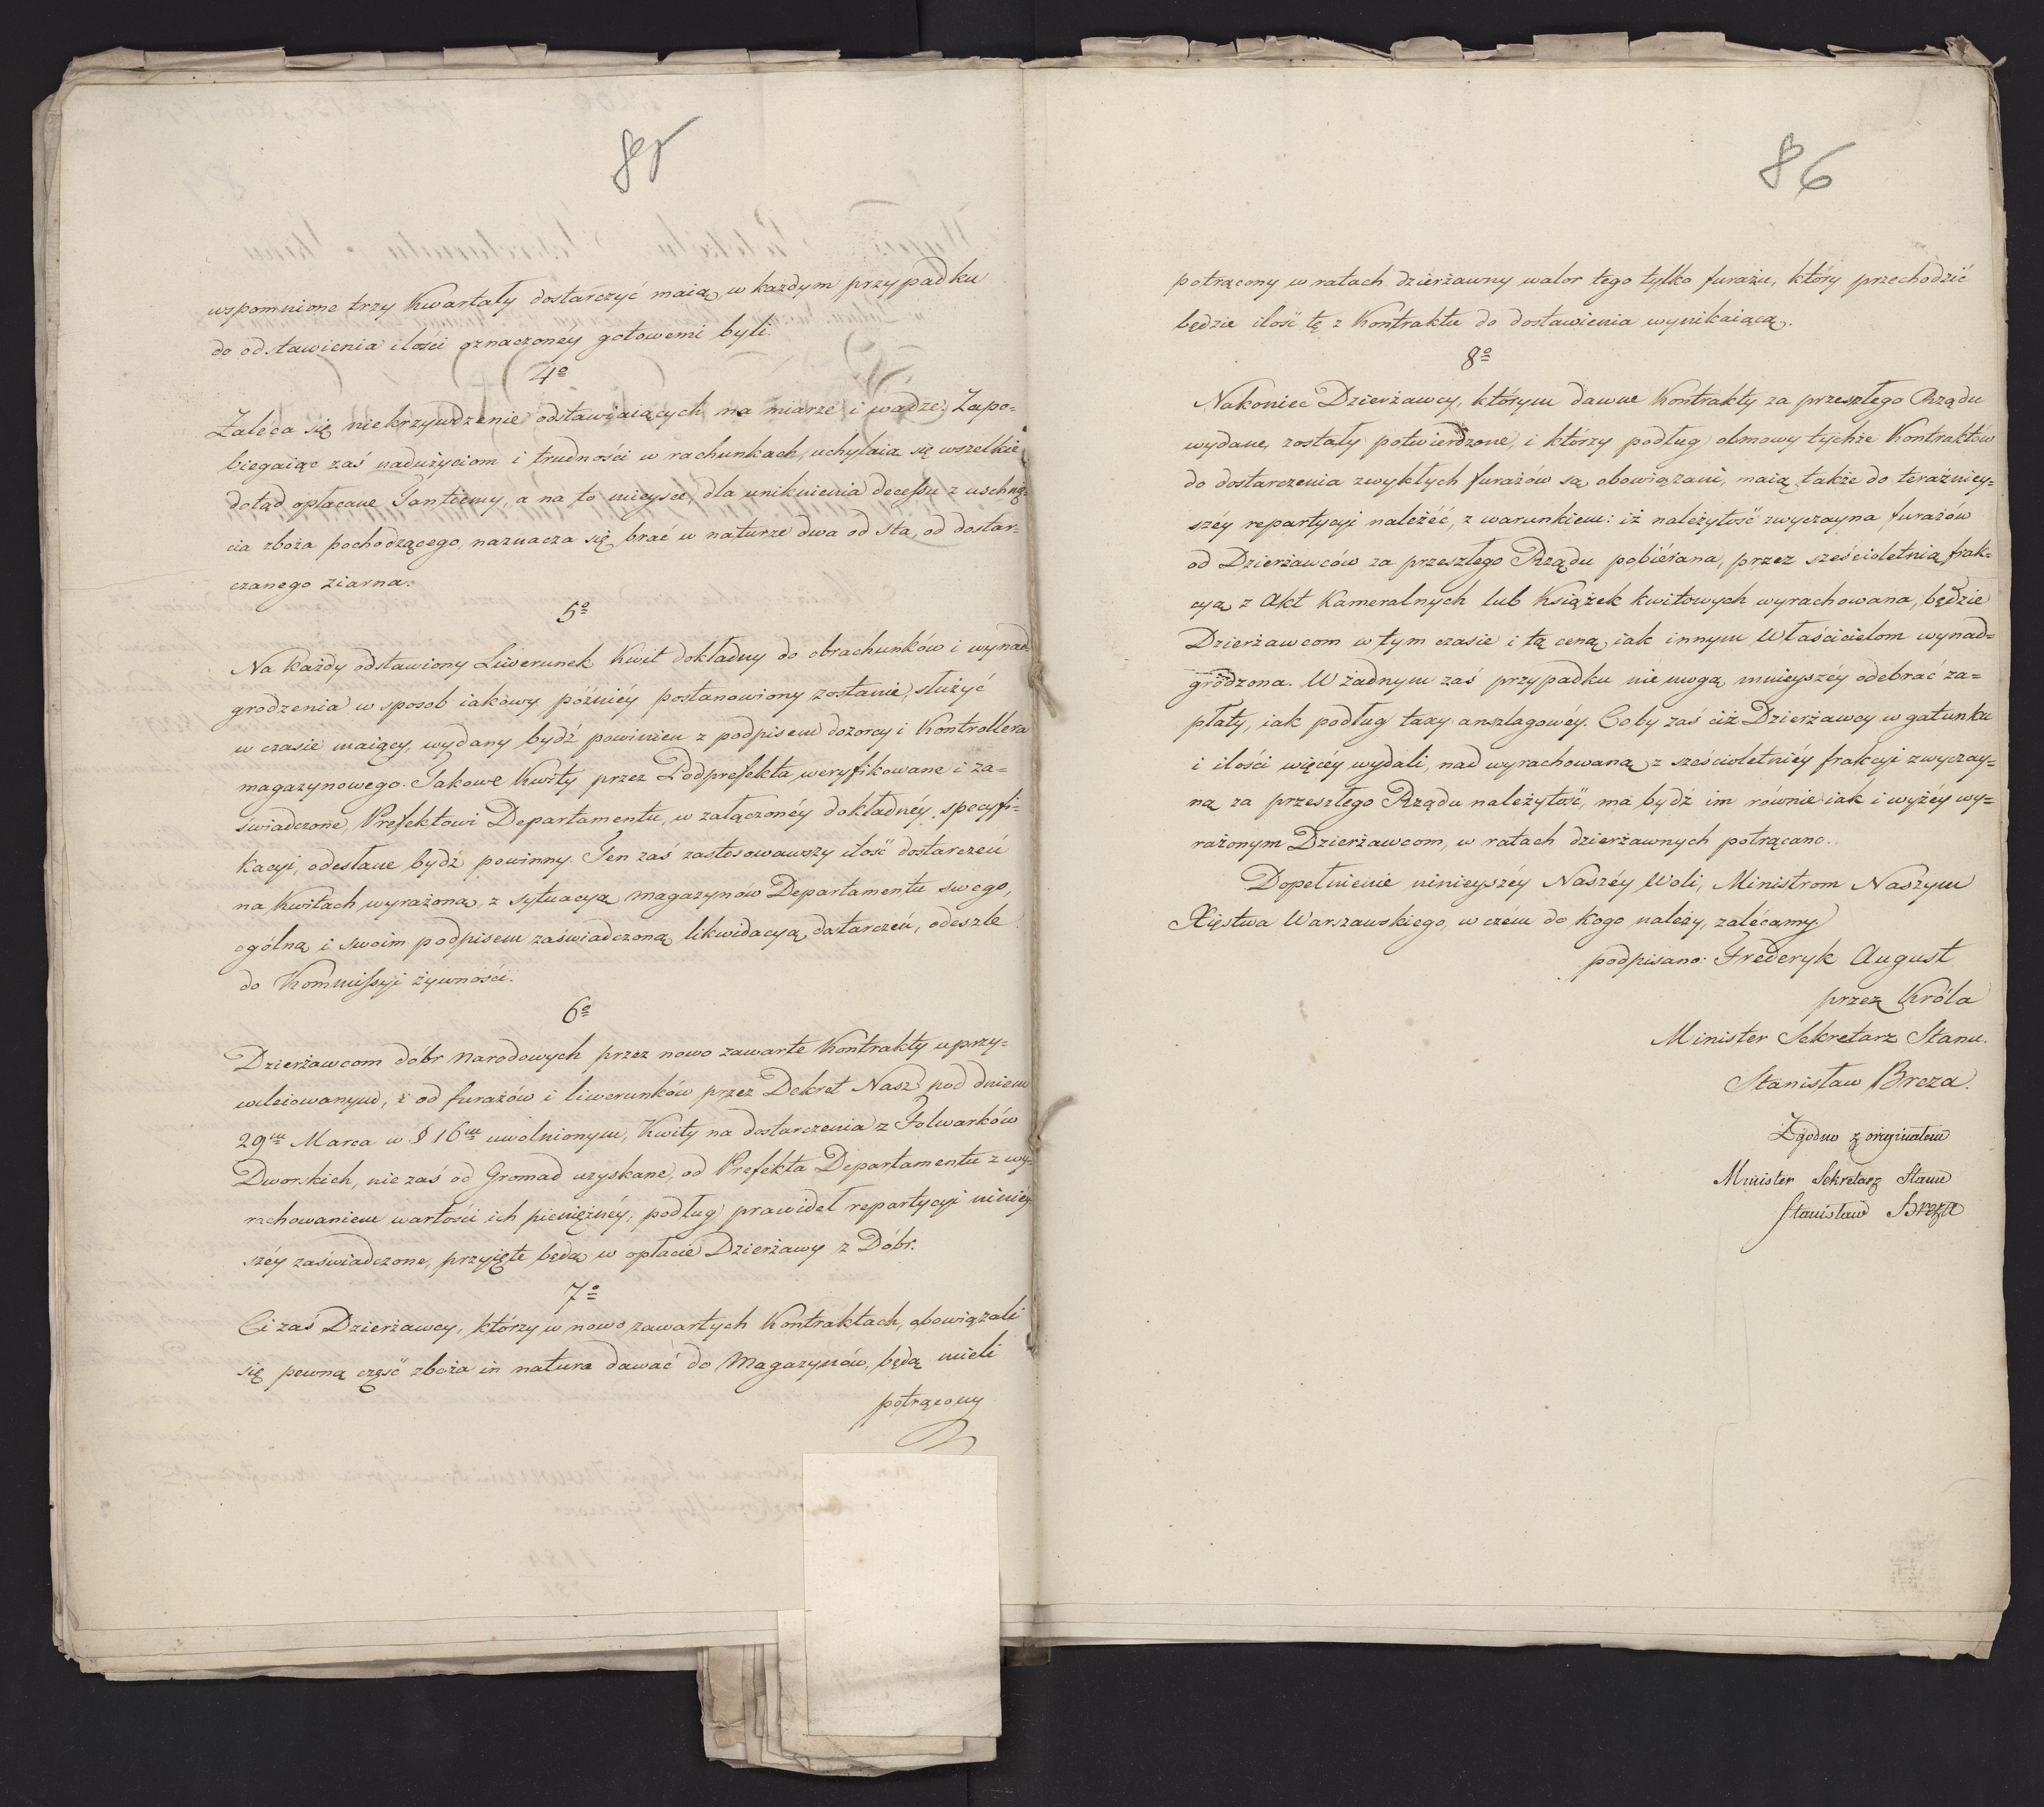 85
wspomnione trzy Kwartały dostarczyć maią, w każdym przypadku
do odstawienia ilości oznaczonéy gotowemi byli.
4o
Zaléca się niekrzywdzenie odstawiaiących na miarze i wadze. Zapo-
biegaiąc zaś nadużyciom i trudności w rachunkach, uchylaią się wszelkie
dotąd opłacane Tantiemy, a na to mieysce, dla uniknienia decessu z uschnię-
cia zboża pochodzącego, naznacza się brać w naturze dwa od sta, od dostar-
czanego ziarna.
5o
Na każdy odstawiony Liwerunek Kwit dokładny do obrachunków i wynad-
grodzenia w sposob iakowy późniéy postanowiony zostanie, służyć
w czasie maiący, wydany bydź powinien z podpisem dozorcy i Kontrollera
magazynowego. Takowe Kwity przez Podprefekta weryfikowane i za-
świadczone, Prefektowi Departamentu, w załączonéy dokładnéy specyfi-
kacyi, odesłane bydź powinny. Ten zaś zastosowawszy ilość dostarczeń
na Kwitach wyrażoną, z sytuacyą magazynów Departamentu swego,
ogólną i swoim podpisem zaświadczoną likwidacyą dostarczeń, odeszle
do Kommissyi żywności.
6o
Dzierżawcom dóbr Narodowych przez nowo zawarte Kontrakty uprzy-
wileiowanym, i od furażów i liwerunków przez Dekret Nasz pod dniem
29m Marca w § 16m uwolnionym, Kwity na dostarczenia z Folwarków
Dworskich, nie zaś od Gromad uzyskane, od Prefekta Departamentu z wy-
rachowaniem wartości ich pieniężnéy, podług prawideł repartycyi niniéy-
széy zaświadczone, przyięte będą w opłacie Dzierżawy z Dóbr.
7o
Ci zaś Dzierżawcy, którzy w nowo zawartych Kontraktach, obowiązali
się pewną część zboża in natura dawać do Magazynów, będą mieli
potrącony
86
potrącony w ratach dzierżawny walor tego tylko furażu, który przechodzić
będzie ilość tę z Kontraktu do dostawienia wynikaiącą.
8o
Nakoniec Dzierżawcy, którym dawne Kontrakty za przeszłego Rządu
wydane, zostały potwierdzone, i którzy podług obmowy tychże Kontraktów
do dostarczenia zwykłych furażów są obowiązani, maią także do teraźniey-
széy repartycyi należéć, z warunkiem: iż należytość zwyczayna furażów
od Dzierżawców za przeszłego Rządu pobiérana, przez sześcioletnią frak-
cyą z Akt Kameralnych lub Książek kwitowych wyrachowana, będzie
Dzierżawcom w tym czasie i tą ceną iak innym Właścicielom wynad-
grodzona. W żadnym zaś przypadku nie mogą mnieyszéy odebrać za-
płaty, iak podług taxy anszlagowéy. Coby zaś ciż Dzierżawcy w gatunku
i ilości więcéy wydali, nad wyrachowaną z sześcioletniéy frakcyi zwyczay-
ną za przeszłego Rządu należytość, ma bydź im równie iak i wyżéy wy-
rażonym Dzierżawcom, w ratach dzierżawnych potrącano.
Dopełnienie ninieyszéy Naszéy Woli, Ministrom Naszym
Xięstwa Warszawskiego, w czém do kogo należy, zalécamy.
podpisano: Frederyk August
przez Króla
Minister Sekretarz Stanu.
Stanisław Breza.
Zgodno z oryginałem
Minister Sekretarz Stanu
Stanisław Breza